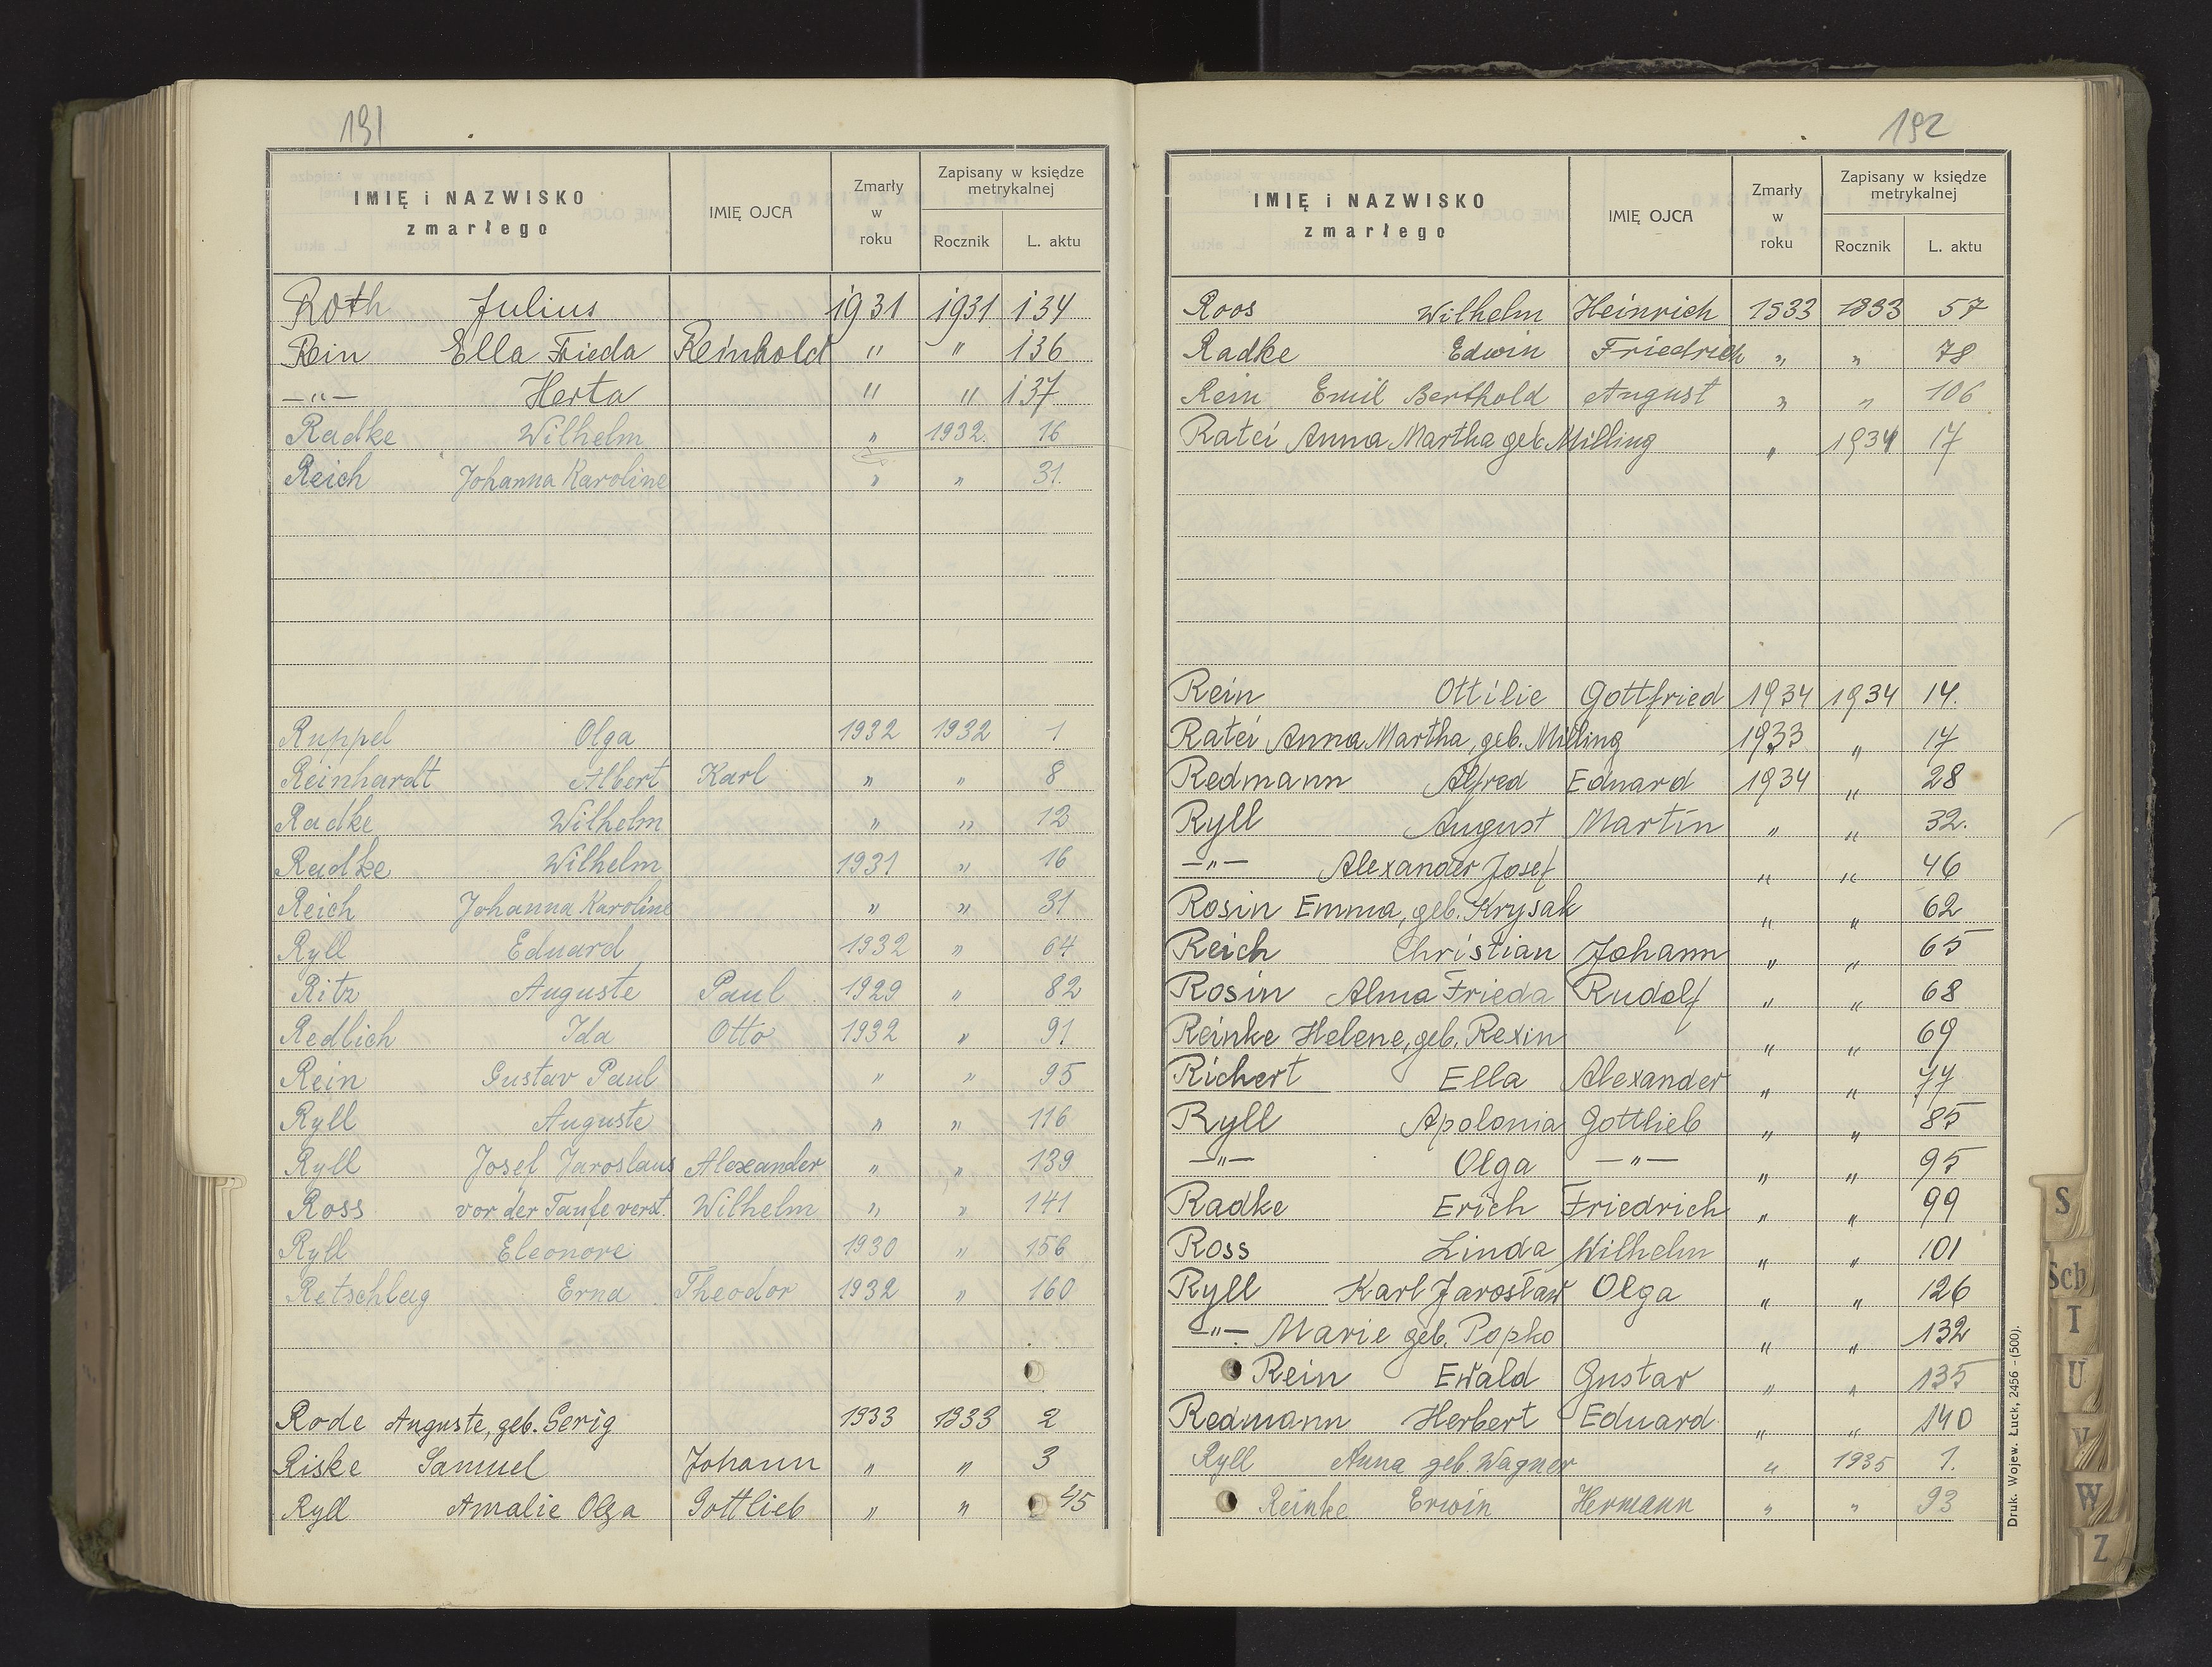 191
IMIĘ i NAZWISKO zmarłego IMIĘ OJCA Zmarły w roku Zapisany w księdze metrykalnej Rocznik L. aktu
Roth Julius 1931 1931 134
Rein Ella Frieda Reinhold " " 136
—"— Herta " " 137
Radke Wilhelm " 1932. 16
Reich Johanna Karoline " " 31.
Ruppel Olga 1932 1932 1
Reinhardt Albert Karl " " 8
Radke Wilhelm " " 13
Radke Wilhelm 1931 " 16
Reich Johanna Karoline " " 31
Ryll Eduard 1932 " 64
Ritz Auguste Paul 1929 " 82
Redlich Ida Otto 1932 " 91
Rein Gustav Paul " " 95
Ryll Auguste " " 116
Ryll Josef Jaroslaus Alexander " " 139
Ross vor der Taufe verst. Wilhelm " " 141
Ryll Eleonore 1930 " 156
Retschlag Erna Theodor 1932 " 160
Rode Auguste, geb. Gerig 1933 1933 2
Riske Samuel Johann " " 3
Ryll Amalie Olga Gottlieb " " 45
192
IMIĘ i NAZWISKO zmarłego IMIĘ OJCA Zmarły w roku Zapisany w księdze metrykalnej Rocznik L. aktu
Roos Wilhelm Heinrich 1933 1933 57
Radke Edwin Friedrich " " 78
Rein Emil Berthold August " " 106
Ratei Anna Martha geb. Milling " 1934 17
Rein Ottilie Gottfried 1934 1934 14.
Ratei Anna Martha, geb. Milling 1933 " 17
Redmann Alfred Eduard 1934 " 28
Ryll August Martin " " 32.
—"— Alexander Josef " " 46
Rosin Emma, geb. Krysak " " 62
Reich Christian Johann " " 65
Rosin Alma Frieda Rudolf " " 68
Reinke Helene, geb. Rexin " " 69
Richert Ella Alexander " " 77
Ryll Apolonia Gottlieb " " 85
—"— Olga —"— " " 95
Radke Erich Friedrich " " 99
Ross Linda Wilhelm " " 101
Ryll Karl Jarosław Olga " " 126
—"— Marie geb. Popko " " 132
Rein Ewald Gustav " " 135
Redmann Herbert Eduard " " 140
Ryll Anna geb. Wagner " 1935 1.
Reinke Erwin Hermann " " 93
Druk. Wojew. Łuck, 2456 – (500).
S
Sch
T
U
V
W
Z